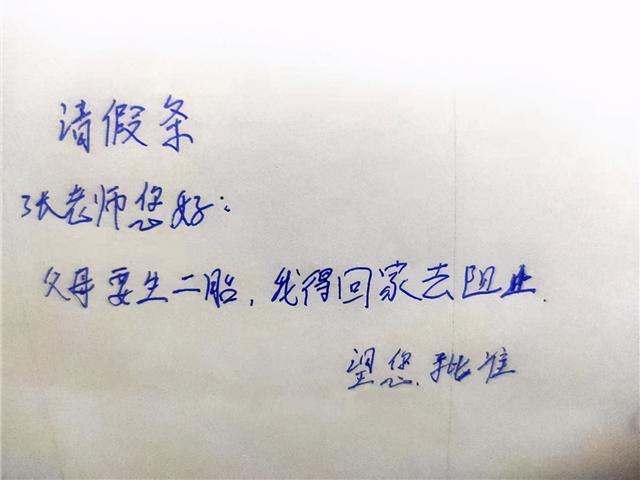 请假条
张老师您好:
父母要生二胎,我得回家去阻止.
望您批准